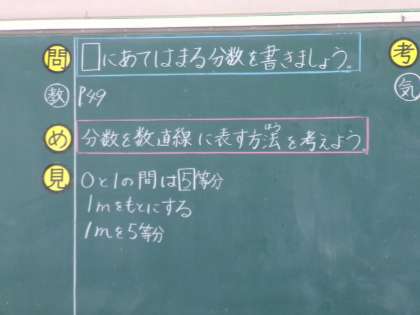 問 □にあてはまる分数を書きましょう。
教 P49
め 分数を数直線に表す方法を考えよう。
ほう
見 0と1の間は5等分
1mをもとにする
1mを5等分
考
気